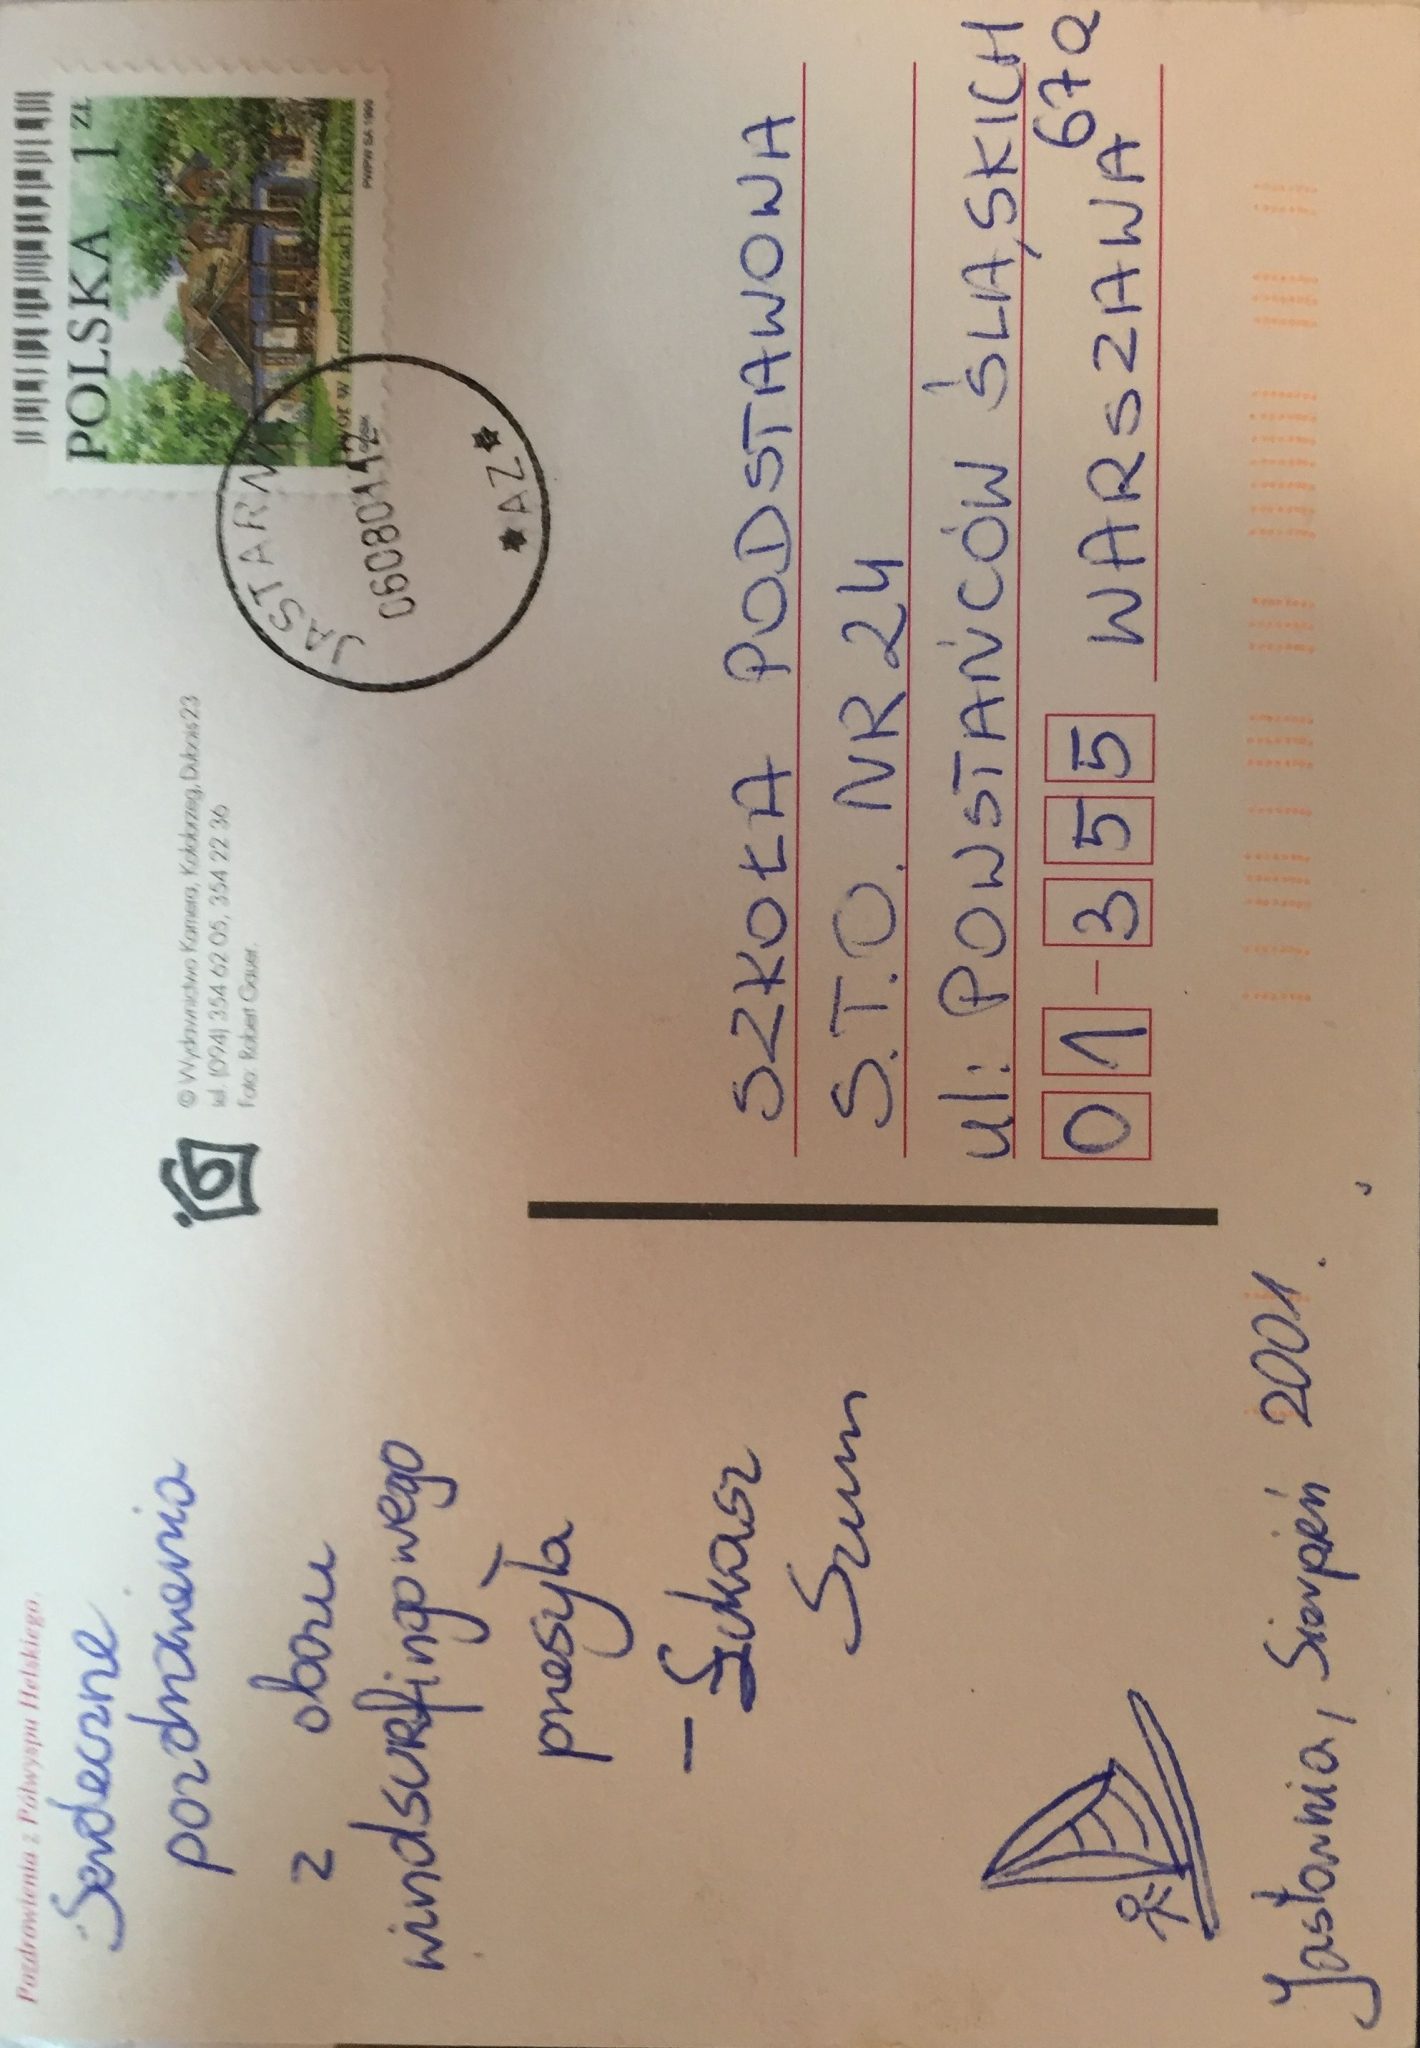 Pozdrowienia z Półwyspu Helskiego.
Serdeczne
pozdrowienia
z obozu
windsurfingowego
przesyła
– Łukasz
Szum
Jastarnia, Sierpień 2001.
© Wydawnictwo Kamera, Kołobrzeg, Dubois 23
tel. (094) 354 62 05, 354 22 36
Foto: Robert Gauer.
POLSKA 1 ZŁ
w Krzesławicach k. Krakowa
PWPW SA 1999
JASTARNIA
AZ
SZKOŁA PODSTAWOWA
S.T.O. NR 24
ul: POWSTAŃCÓW ŚLĄSKICH
67a
01-355 WARSZAWA